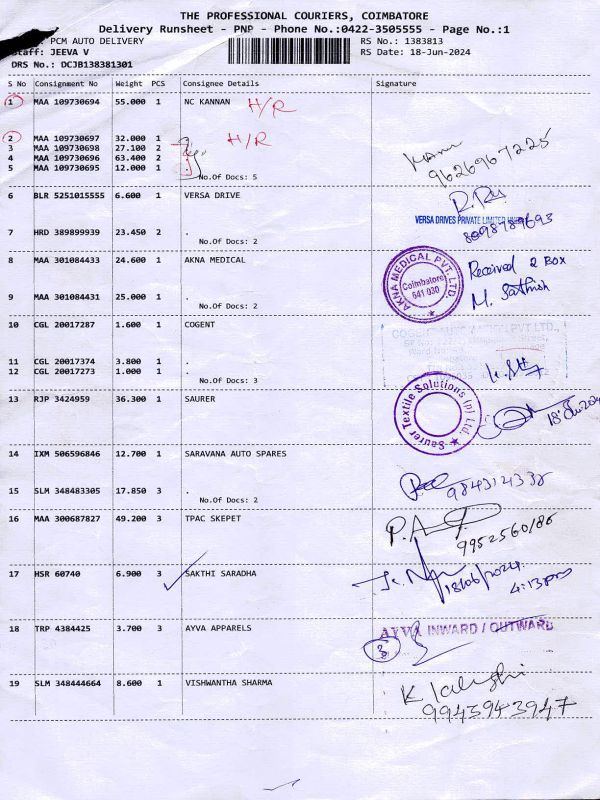 THE PROFESSIONAL COURIERS, COIMBATORE
Delivery Runsheet - PNP - Phone No.:0422-3505555 - Page No.:1
PCM AUTO DELIVERY RS No.: 1383813
Staff: JEEVA V RS Date: 18-Jun-2024
DRS No.: DCJB138381301
S No Consignment No Weight PCS Consignee Details Signature
1 MAA 109730694 55.000 1 NC KANNAN H/R
2 MAA 109730697 32.000 1 H/R
3 MAA 109730698 27.100 2
4 MAA 109730696 63.400 2
5 MAA 109730695 12.000 1
No.Of Docs: 5
9626967225
6 BLR 5251015555 6.600 1 VERSA DRIVE
VERSA DRIVES PRIVATE LIMITED
8098789693
7 HRD 389899939 23.450 2 .
No.Of Docs: 2
8 MAA 301084433 24.600 1 AKNA MEDICAL
AKNA MEDICAL PVT. LTD.
Coimbatore
641 030
Received 2 Box
M. Sathish
9 MAA 301084431 25.000 1 .
No.Of Docs: 2
10 CGL 20017287 1.600 1 COGENT
PVT LTD.,
11 CGL 20017374 3.800 1 .
12 CGL 20017273 1.000 1 .
No.Of Docs: 3
13 RJP 3424959 36.300 1 SAURER
Saurer Textile Solutions (p) Ltd.
14 IXM 506596846 12.700 1 SARAVANA AUTO SPARES
15 SLM 348483305 17.850 3 .
No.Of Docs: 2
16 MAA 300687827 49.200 3 TPAC SKEPET
17 HSR 60740 6.900 3 SAKTHI SARADHA
18/06/2024
4:13pm
18 TRP 4384425 3.700 3 AYVA APPARELS
AYVA INWARD / OUTWARD
3
19 SLM 348444664 8.600 1 VISHWANTHA SHARMA
9943943947